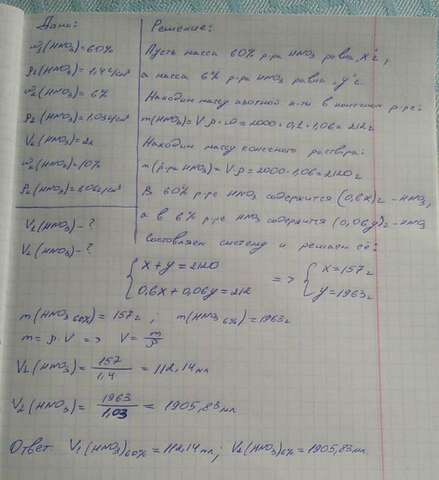 Дано:
ω1(HNO3)=60%
ρ1(HNO3)=1,4г/см³
ω2(HNO3)=6%
ρ2(HNO3)=1,03г/см³
V2(HNO3)=2л
ω2(HNO3)=10%
ρ2(HNO3)=1,06г/см³
V1(HNO3)-?
V2(HNO3)-?
Решение:
Пусть масса 60% р-ра HNO3 равна "x"г,
а масса 6% р-ра HNO3 равна "y"г
Находим массу азотной к-ты в конечном р-ре:
m(HNO3)=V·ρ·ω=2000·0,1·1,06=212г
Находим массу конечного раствора:
m(р-ра HNO3)=V·ρ=2000·1,06=2120г
В 60% р-ре HNO3 содержится (0,6x)г - HNO3,
а в 6% р-ре HNO3 содержится (0,06y)г - HNO3
Составляем систему и решаем её:
{x+y=2120 => {x=157г
0,6x+0,06y=212 y=1963г
m(HNO3 60%)=157г; m(HNO3 6%)=1963г
m=ρ·V => V=m/ρ
V1(HNO3)=157/1,4=112,14мл
V2(HNO3)=1963/1,03=1905,83мл
Ответ: V1(HNO3)60%=112,14мл; V2(HNO3)6%=1905,83мл